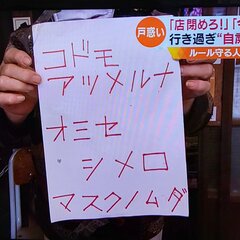 戸惑い
「店閉めろ!」「
行き過ぎ"自粛
ルール守る人
コドモ
アツメルナ
オミセ
シメロ
マスクノムダ